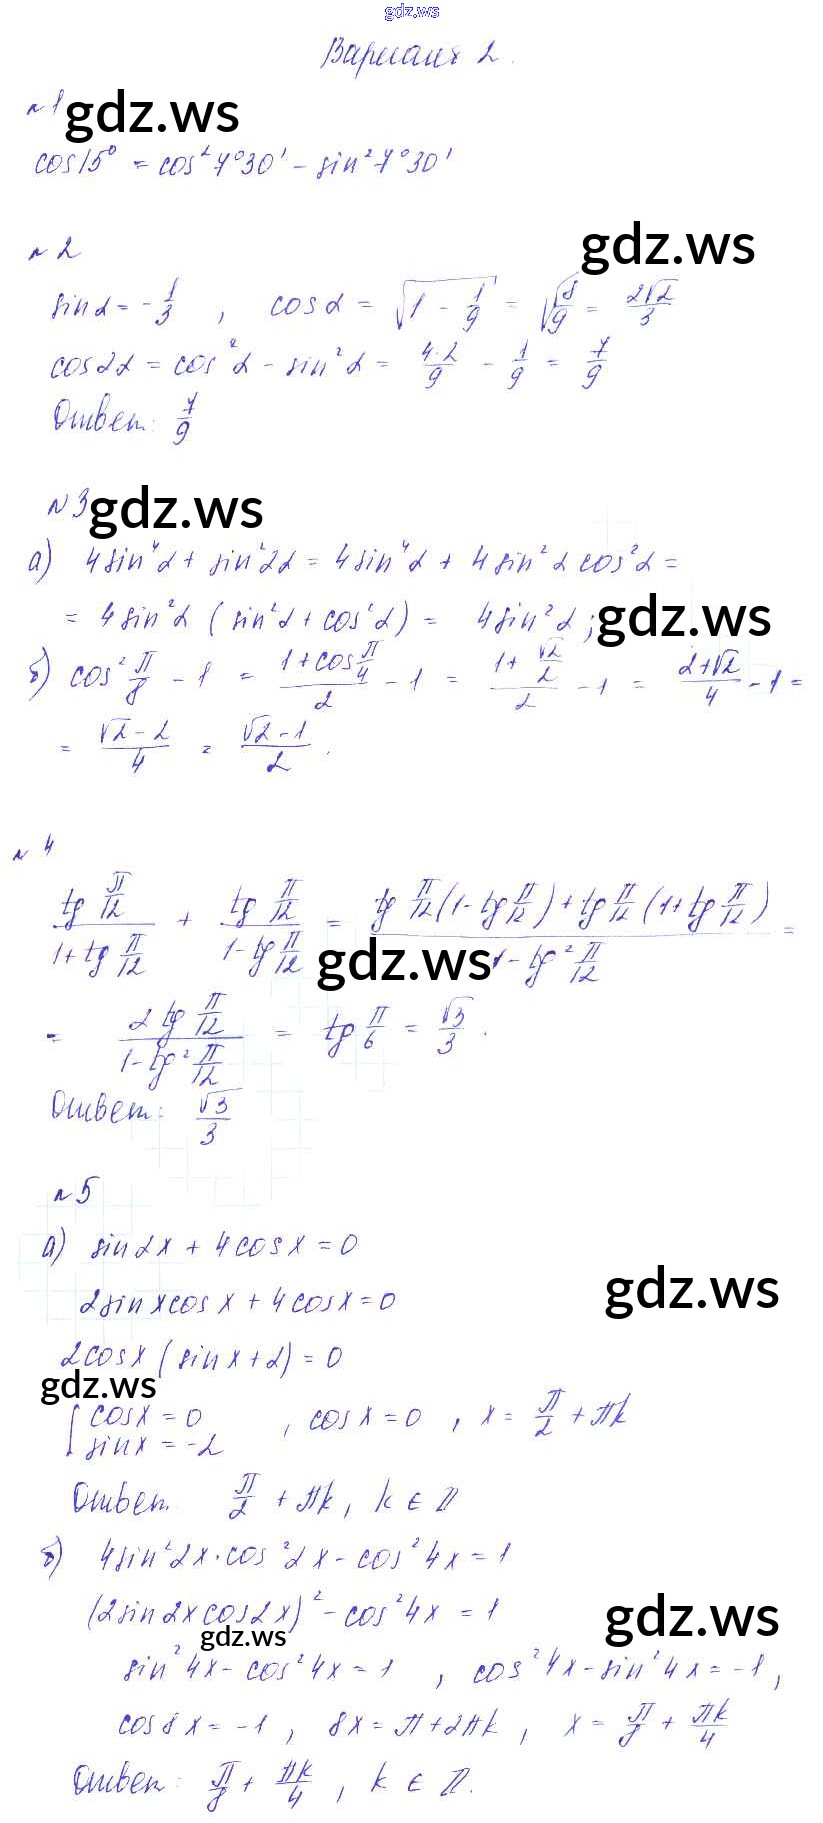 gdz.ws
Вариант 2.
№1
cos15° = cos²7°30' - sin²7°30'
№2
sinα = -1/3, cosα = √(1 - 1/9) = √(8/9) = 2√2/3
cos2α = cos²α - sin²α = 4·2/9 - 1/9 = 7/9
Ответ: 7/9
№3
а) 4sin⁴α + sin²2α = 4sin⁴α + 4sin²α cos²α =
= 4sin²α (sin²α + cos²α) = 4sin²α;
б) cos² π/8 - 1 = (1 + cos π/4)/2 - 1 = (1 + √2/2)/2 - 1 = (2+√2)/4 - 1 =
= (√2 - 2)/4 = (√2 - 1)/2.
№4
tg π/12/(1 + tg π/12) + tg π/12/(1 - tg π/12) = (tg π/12 (1 - tg π/12) + tg π/12 (1 + tg π/12))/(1 - tg² π/12) =
= 2 tg π/12/(1 - tg² π/12) = tg π/6 = √3/3.
Ответ: √3/3
№5
а) sin2x + 4cosx = 0
2sinxcosx + 4cosx = 0
2cosx (sinx + 2) = 0
[cosx = 0
sinx = -2, cosx = 0, x = π/2 + πk
Ответ π/2 + πk, k ∈ Z
б) 4sin²2x·cos²2x - cos²4x = 1
(2sin2xcos2x)² - cos²4x = 1
sin²4x - cos²4x = 1, cos²4x - sin²4x = -1,
cos8x = -1, 8x = π + 2πk, x = π/8 + πk/4
Ответ: π/8 + πk/4, k ∈ Z.
gdz.ws
gdz.ws
gdz.ws
gdz.ws
gdz.ws
gdz.ws
gdz.ws
gdz.ws
gdz.ws